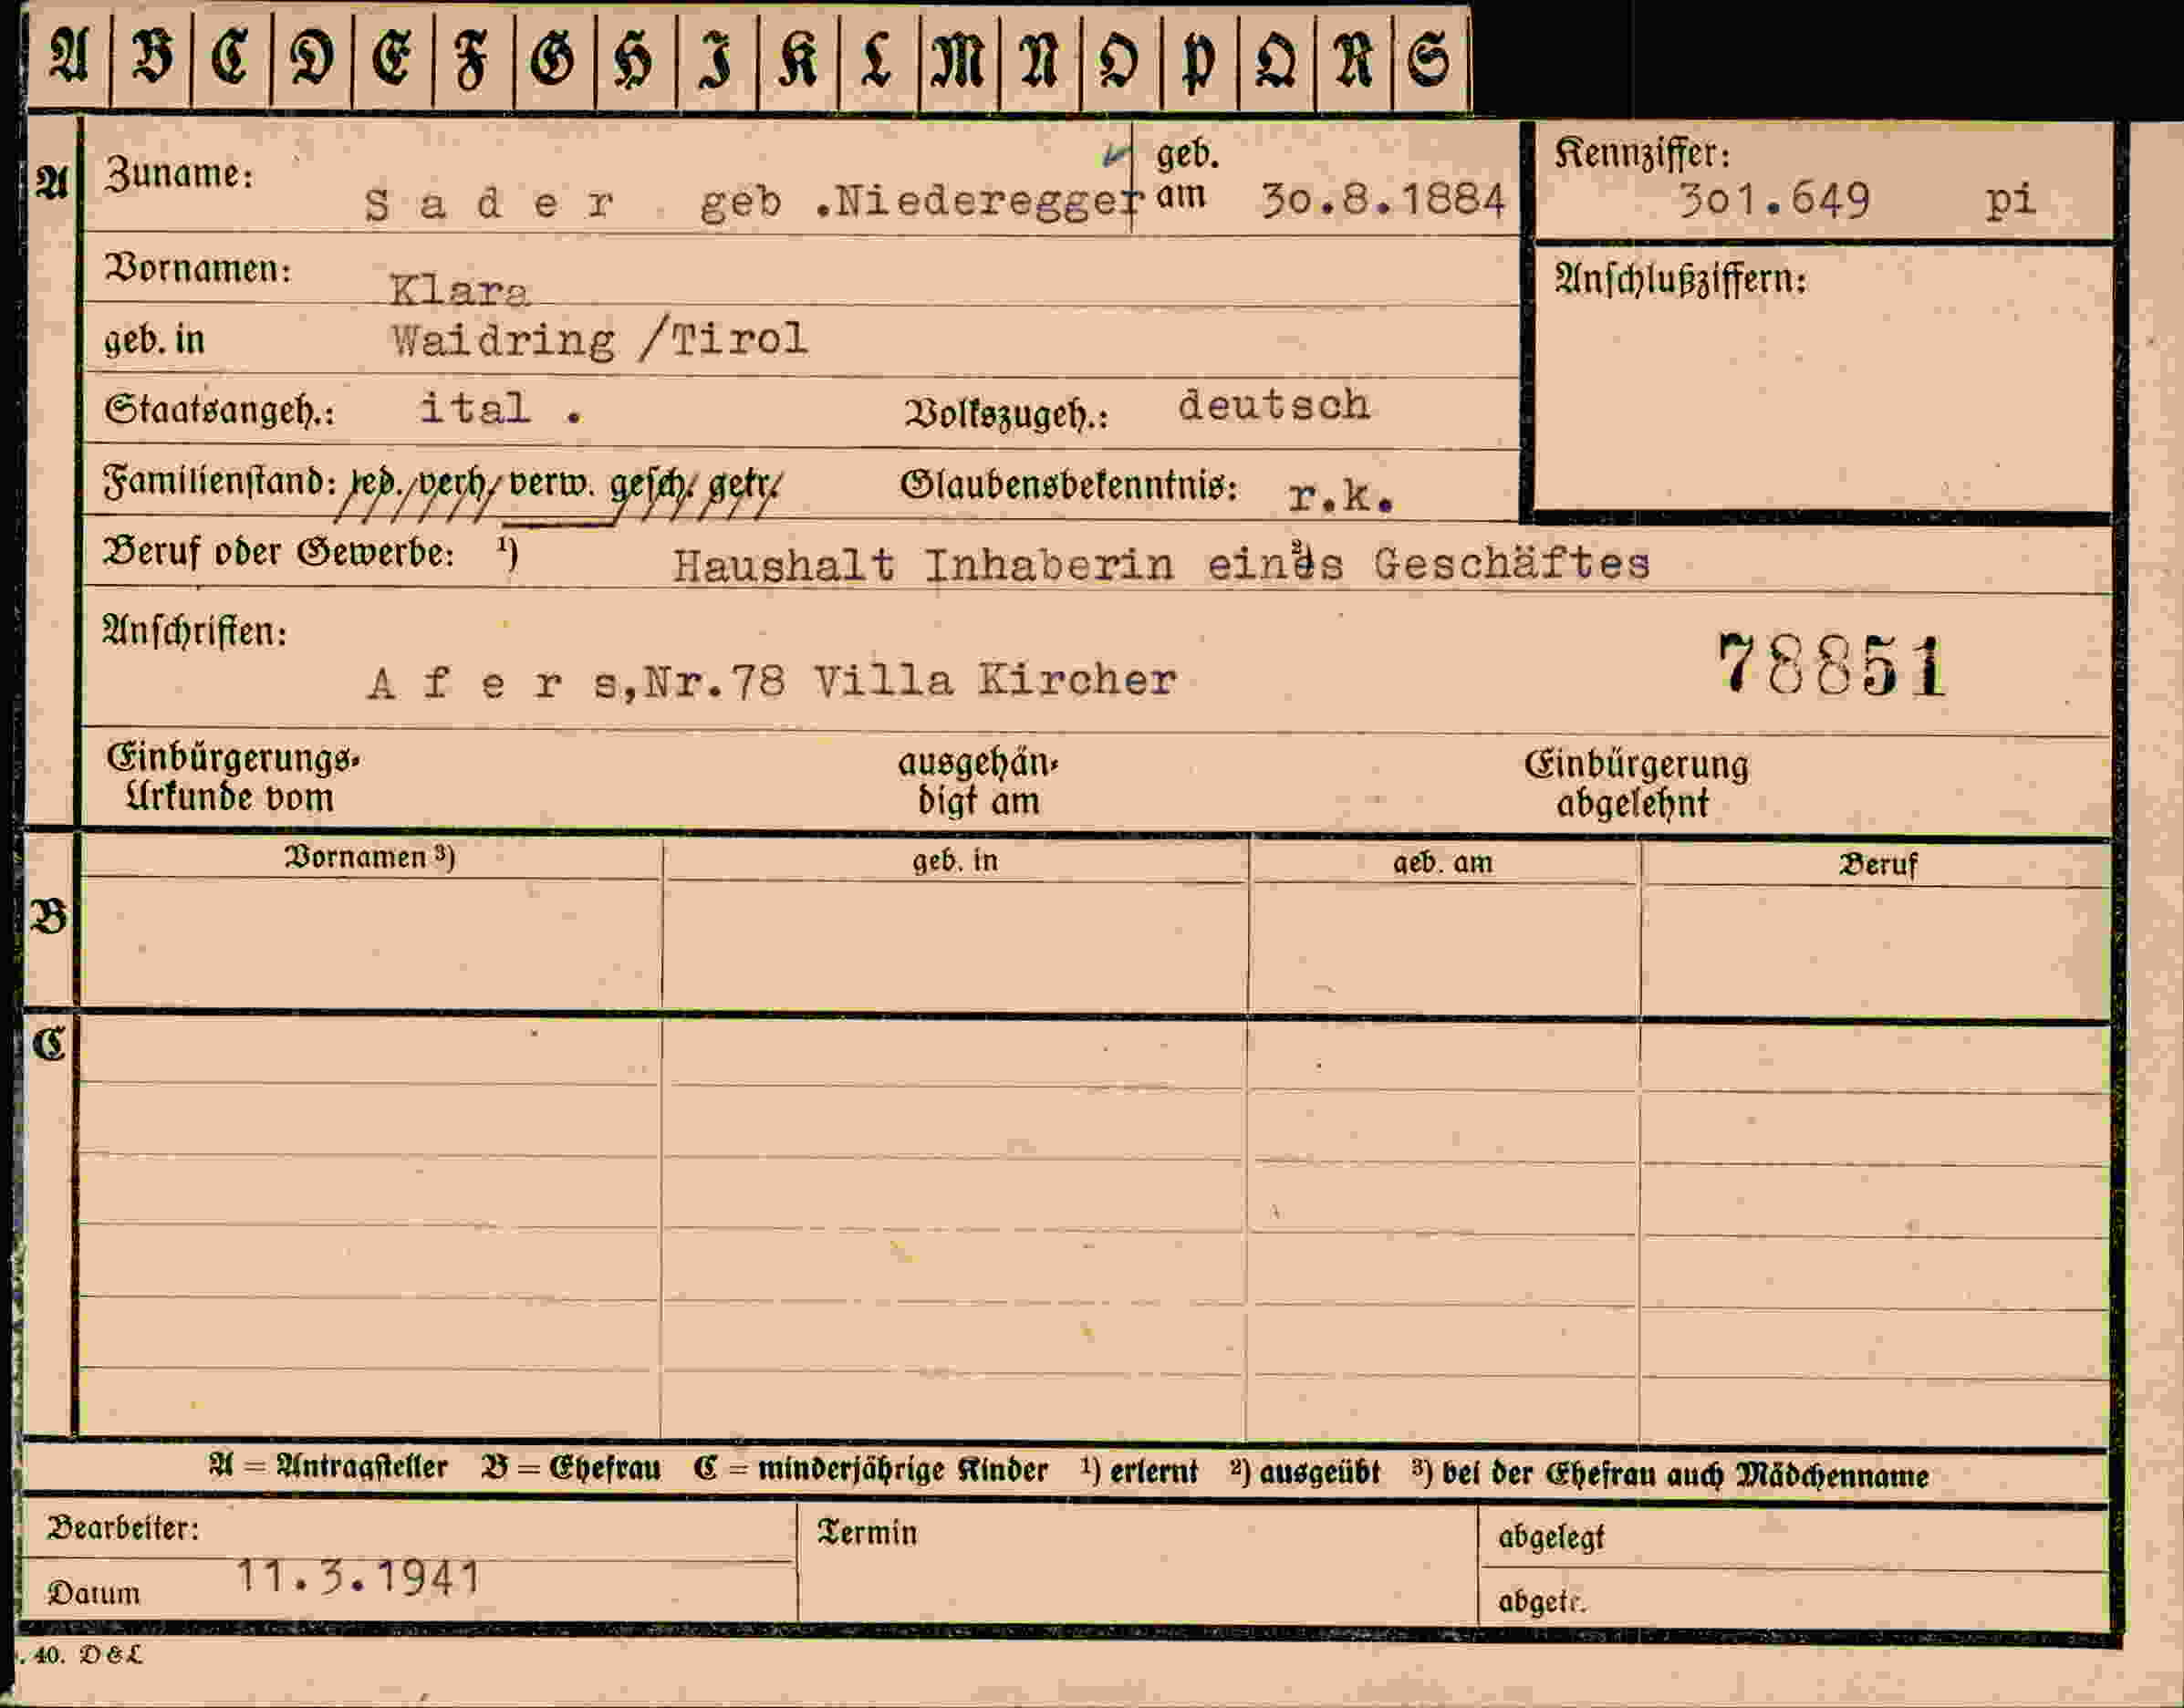 A B C D E F G H I K L M N O P Q R S
A Zuname: S a d e r geb .Niederegger geb. am 30.8.1884
Kennziffer: 301.649 pi
Vornamen: Klara
Anschlußziffern:
geb. in Waidring /Tirol
Staatsangeh.: ital . Volkszugeh.: deutsch
Familienstand: led./verh/verw. gesch/ getr/ Glaubensbekenntnis: r.k.
Beruf oder Gewerbe: ¹) Haushalt Inhaberin eines ²) Geschäftes
Anschriften:
A f e r s,Nr.78 Villa Kircher 78851
Einbürgerungs-
Urkunde vom
ausgehän-
digt am
Einbürgerung
abgelehnt
B Vornamen ³) geb. in geb. am Beruf
C
A = Antragsteller B = Ehefrau C = minderjährige Kinder ¹) erlernt ²) ausgeübt ³) bei der Ehefrau auch Mädchenname
Bearbeiter: Termin abgelegt
Datum 11.3.1941 abgetr.
. 40. D & L